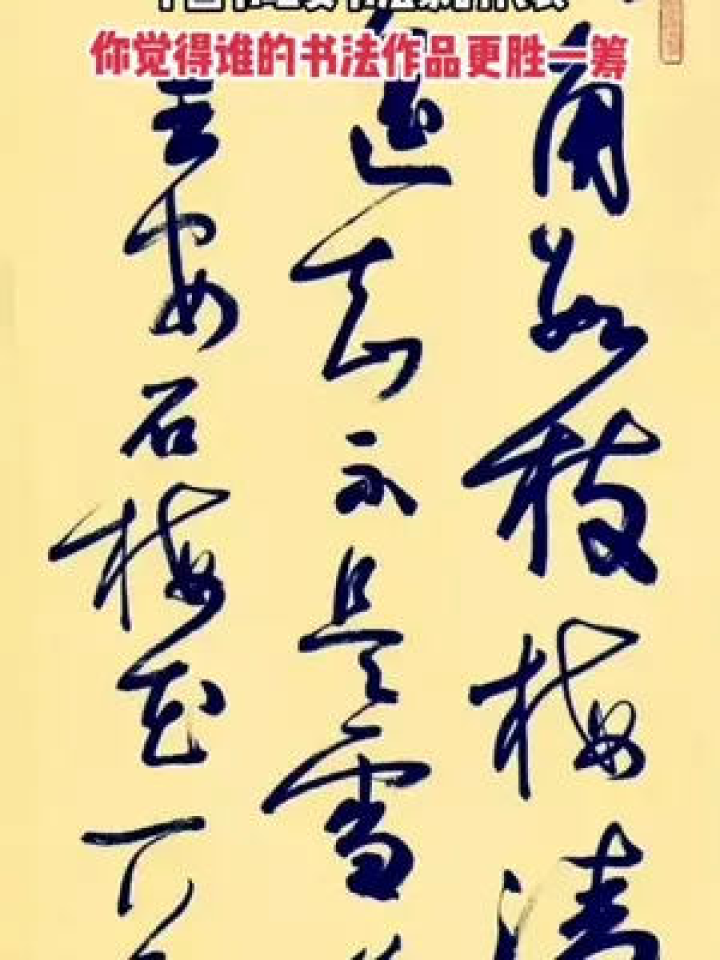 你觉得谁的书法作品更胜一筹
角数枝梅
遥知不是雪
王安石梅花